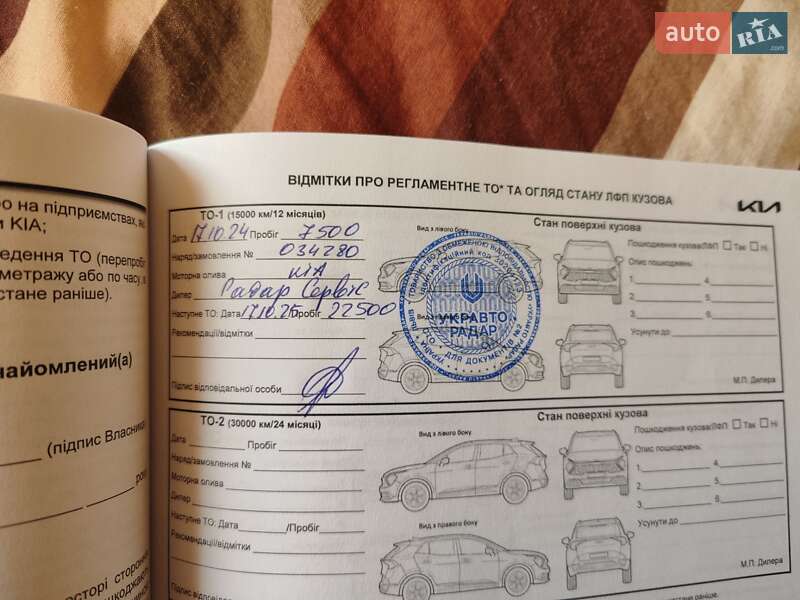 auto RIA.com
ВІДМІТКИ ПРО РЕГЛАМЕНТНЕ ТО* ТА ОГЛЯД СТАНУ ЛФП КУЗОВА
KIA
ро на підприємствах, які
и KIA;
ведення ТО (перепробіг
метражу або по часу, в
стане раніше).
найомлений(а)
(підпис Власника
року
сторі сторонн
ТО-1 (15000 км/12 місяців)
Дата 17.10.24 Пробіг 7500
Наряд/замовлення № 034280
Моторна олива КІА
Дилер Радар Сервіс
Наступне ТО: Дата 17.10.25/Пробіг 22500
Рекомендації/відмітки
Підпис відповідальної особи
Вид з лівого боку
УКРАВТО
РАДАР
ДЛЯ ДОКУМЕНТІВ №2
Стан поверхні кузова
Пошкодження кузова(ЛФП) Так Ні
Опис пошкоджень:
1. 4.
2. 5.
3. 6.
Усунути до
М.П. Дилера
ТО-2 (30000 км/24 місяці)
Дата Пробіг
Наряд/замовлення №
Моторна олива
Дилер
Наступне ТО: Дата /Пробіг
Рекомендації/відмітки
Підпис відповідальної
Вид з лівого боку
Вид з правого боку
Стан поверхні кузова
Пошкодження кузова(ЛФП) Так Ні
Опис пошкоджень:
1. 4.
2. 5.
3. 6.
Усунути до
М.П. Дилера
стане раніше.